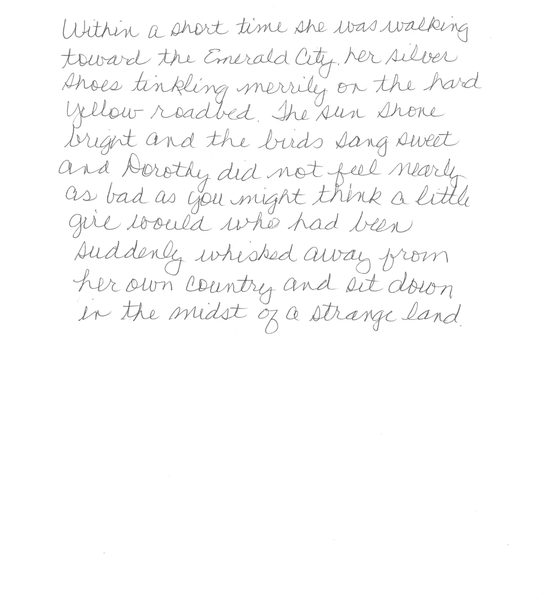 Within a short time she was walking
toward the Emerald City, her silver
shoes tinkling merrily on the hard
yellow roadbed. The sun shone
bright and the birds sang sweet
and Dorothy did not feel nearly
as bad as you might think a little
girl would who had been
suddenly whisked away from
her own country and sit down
in the midst of a strange land.